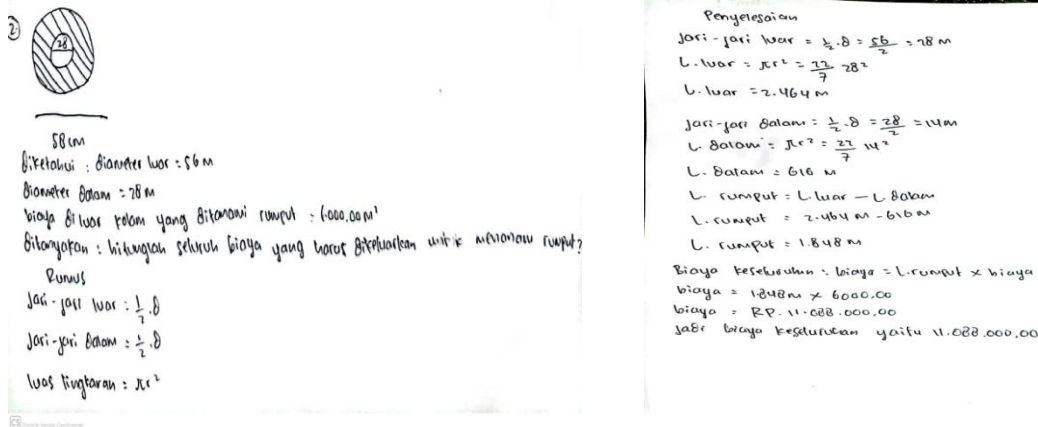 2.
28
58 cm
Diketahui : Diameter luar = 56 M
Diameter dalam = 28 M
biaya di luar kolam yang ditanami rumput : 6.000,00 M²
Ditanyakan : hitunglah seluruh biaya yang harus dikeluarkan untuk menanam rumput?
Rumus
Jari - jari luar : 1/2 . d
Jari - jari dalam : 1/2 . d
luas lingkaran = πr²
Penyelesaian
Jari - jari luar = 1/2 . d = 56/2 = 28 M
L. luar = πr² = 22/7 28²
L. luar = 2.464 m
Jari - jari dalam = 1/2 . d = 28/2 = 14 m
L. dalam = πr² = 22/7 14²
L. Dalam = 616 M
L. rumput = L. luar - L dalam
L. rumput = 2.464 M - 616 M
L. rumput = 1.848 M
Biaya keseluruhan : biaya = L. rumput x biaya
biaya = 1.848 m x 6000,00
biaya = RP. 11.088.000,00
Jadi biaya keseluruhan yaitu 11.088.000,00
CS